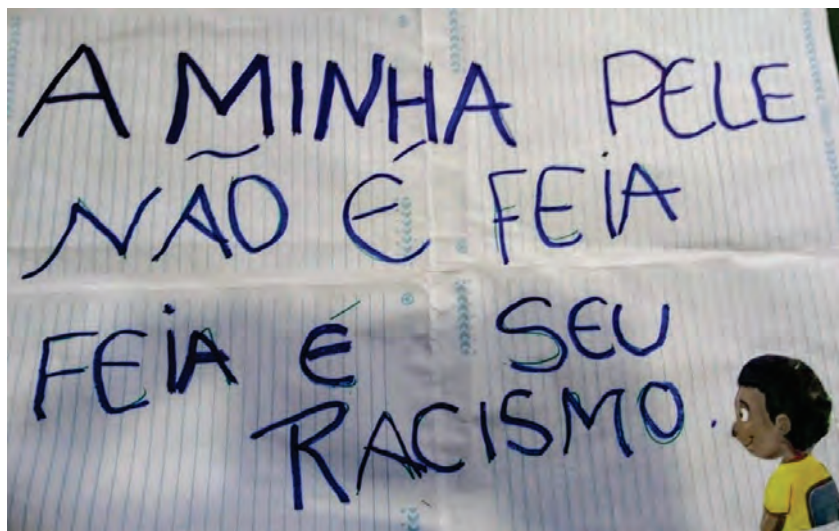 A MINHA PELE
NÃO É FEIA
FEIA É SEU
RACISMO.